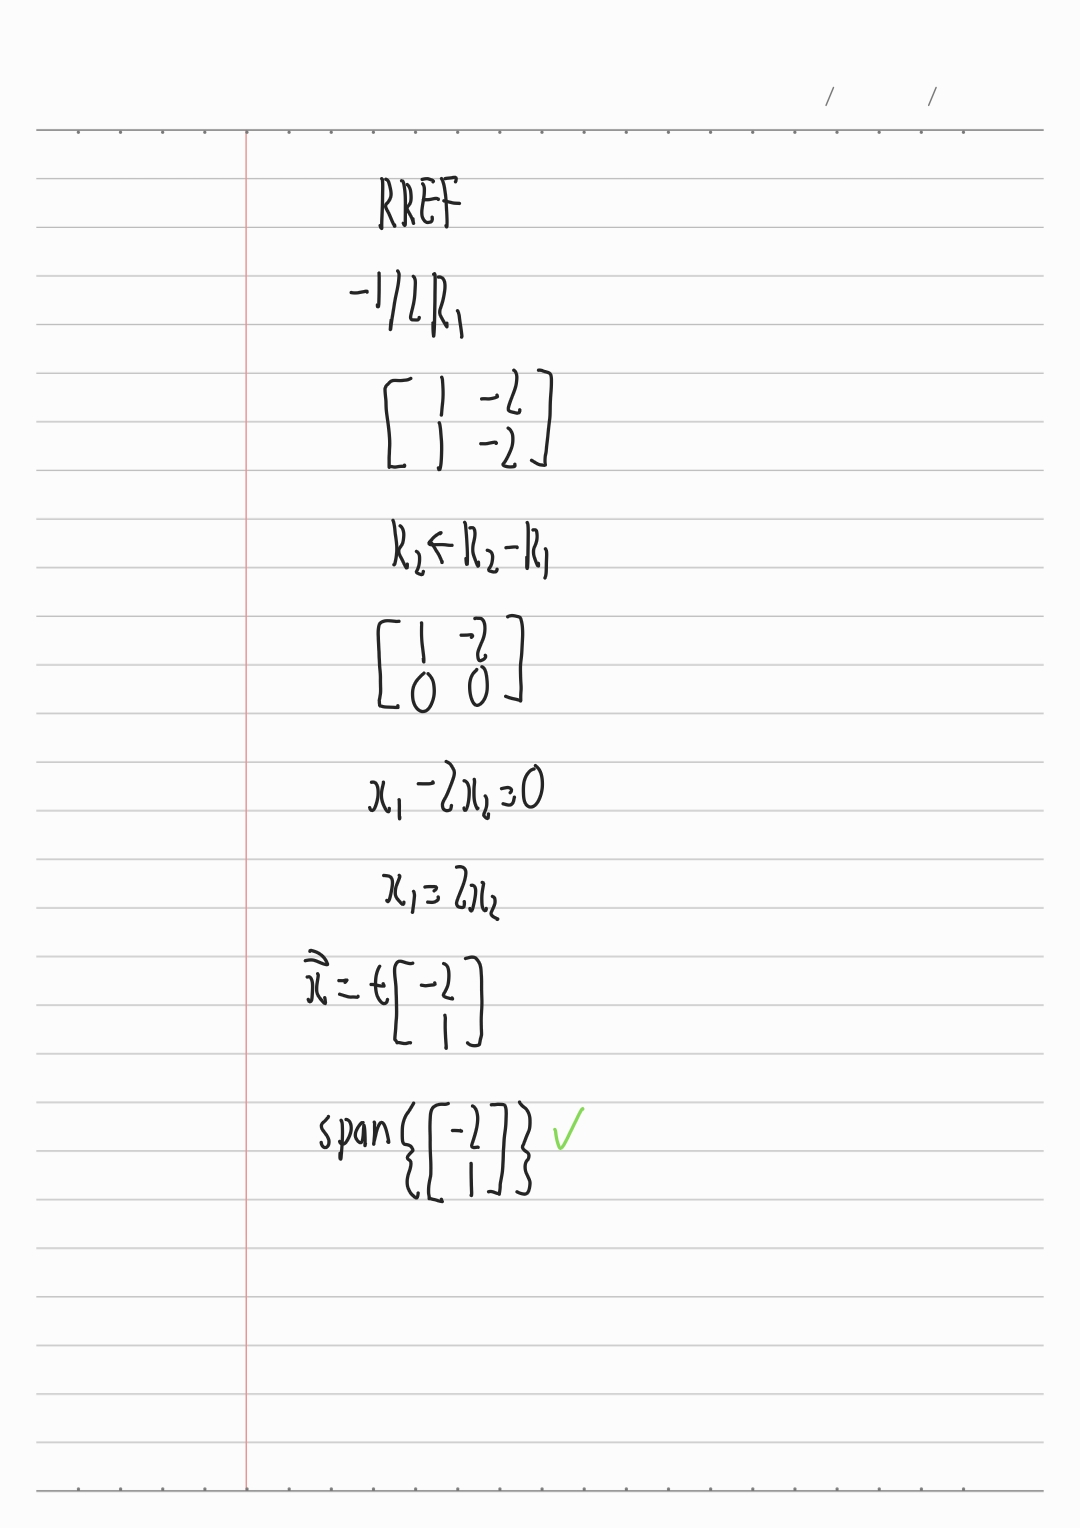 / /
RREF
-1/2 R₁
[ 1 -2 ]
[ 1 -2 ]
R₂ ← R₂ - R₁
[ 1 -2 ]
[ 0 0 ]
x₁ - 2x₂ = 0
x₁ = 2x₂
x⃗ = t [ -2
1 ]
span { [ -2
1 ] } ✓